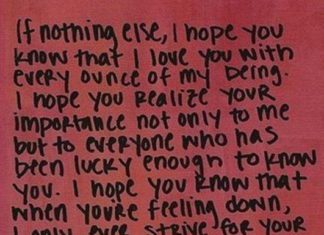 If nothing else, I hope you
know that I love you with
every ounce of my being.
I hope you Realize youR
importance not only to me
but to everyone who has
been lucky enough to know
you. I hope you know that
when you're feeling down,
I only ever strive for your